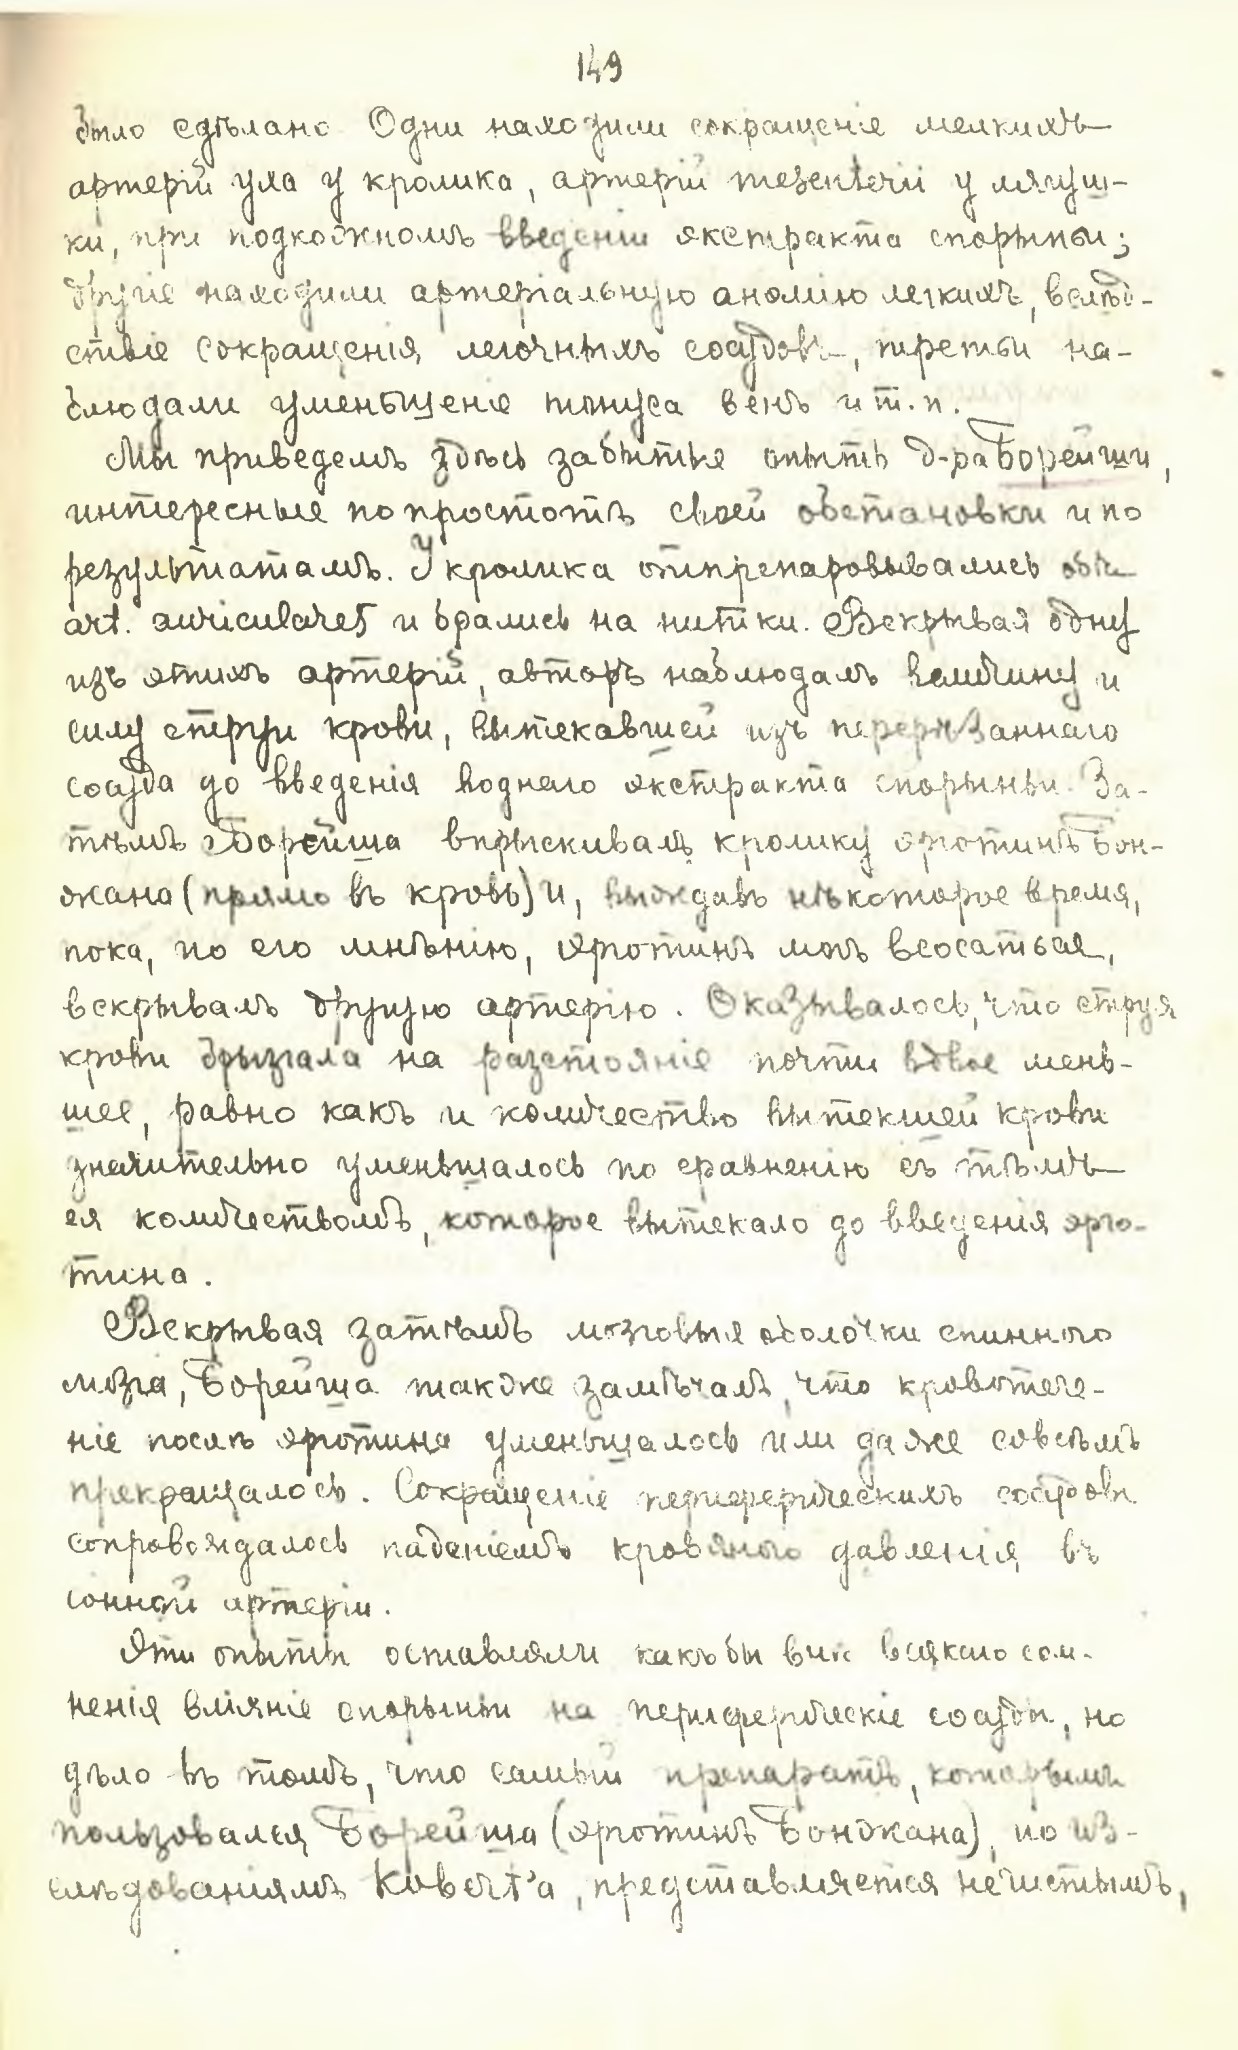 149
было сдѣлано. Одни находили сокращеніе мелкихъ
артерій уха у кролика, артерій mesenterii у лягуш-
ки, при подкожномъ введеніи экстракта спорыньи;
другіе находили артеріальную анэмію легкихъ, вслѣд-
ствіе сокращенія легочныхъ сосудовъ, третьи на-
блюдали уменьшеніе тонуса венъ и т. п.
Мы приведемъ здѣсь забытые опыты д-ра Борейши,
интересные по простотѣ своей обстановки и по
результатамъ. У кролика отпрепаровывались обѣ
art. auriculares и брались на нитки. Вскрывая одну
изъ этихъ артерій, авторъ наблюдалъ величину и
силу струи крови, вытекавшей изъ перерѣзаннаго
сосуда до введенія воднаго экстракта спорыньи. За-
тѣмъ Борейша впрыскивалъ кролику эрготинъ Бон-
жана (прямо въ кровь) и, выждавъ нѣкоторое время,
пока, по его мнѣнію, эрготинъ могъ всосаться,
вскрывалъ другую артерію. Оказывалось, что струя
крови брызгала на разстояніе почти вдвое мень-
шее, равно какъ и количество вытекшей крови
значительно уменьшалось по сравненію съ тѣмъ
ея количествомъ, которое вытекало до введенія эрго-
тина.
Вскрывая затѣмъ мозговыя оболочки спинного
мозга, Борейша также замѣчалъ, что кровотече-
ніе послѣ эрготина уменьшалось или даже совсѣмъ
прекращалось. Сокращеніе периферическихъ сосудовъ
сопровождалось паденіемъ кровяного давленія въ
сонной артеріи.
Эти опыты оставляли какъ бы внѣ всякаго сом-
ненія вліяніе спорыньи на периферическіе сосуды, но
дѣло въ томъ, что самый препаратъ, которымъ
пользовался Борейша (эрготинъ Бонжана), по из-
слѣдованіямъ Kobert'а, представляется нечистымъ,